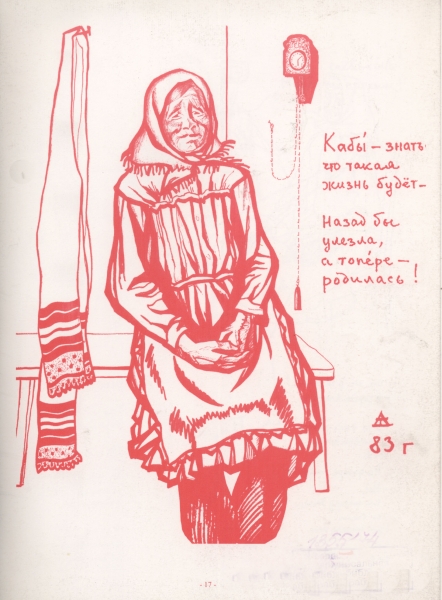 Кабы́ – знать
что такая
жизнь будёт –
Назад бы
улезла,
а топе́ре –
родилась!
83 г
- 17 -